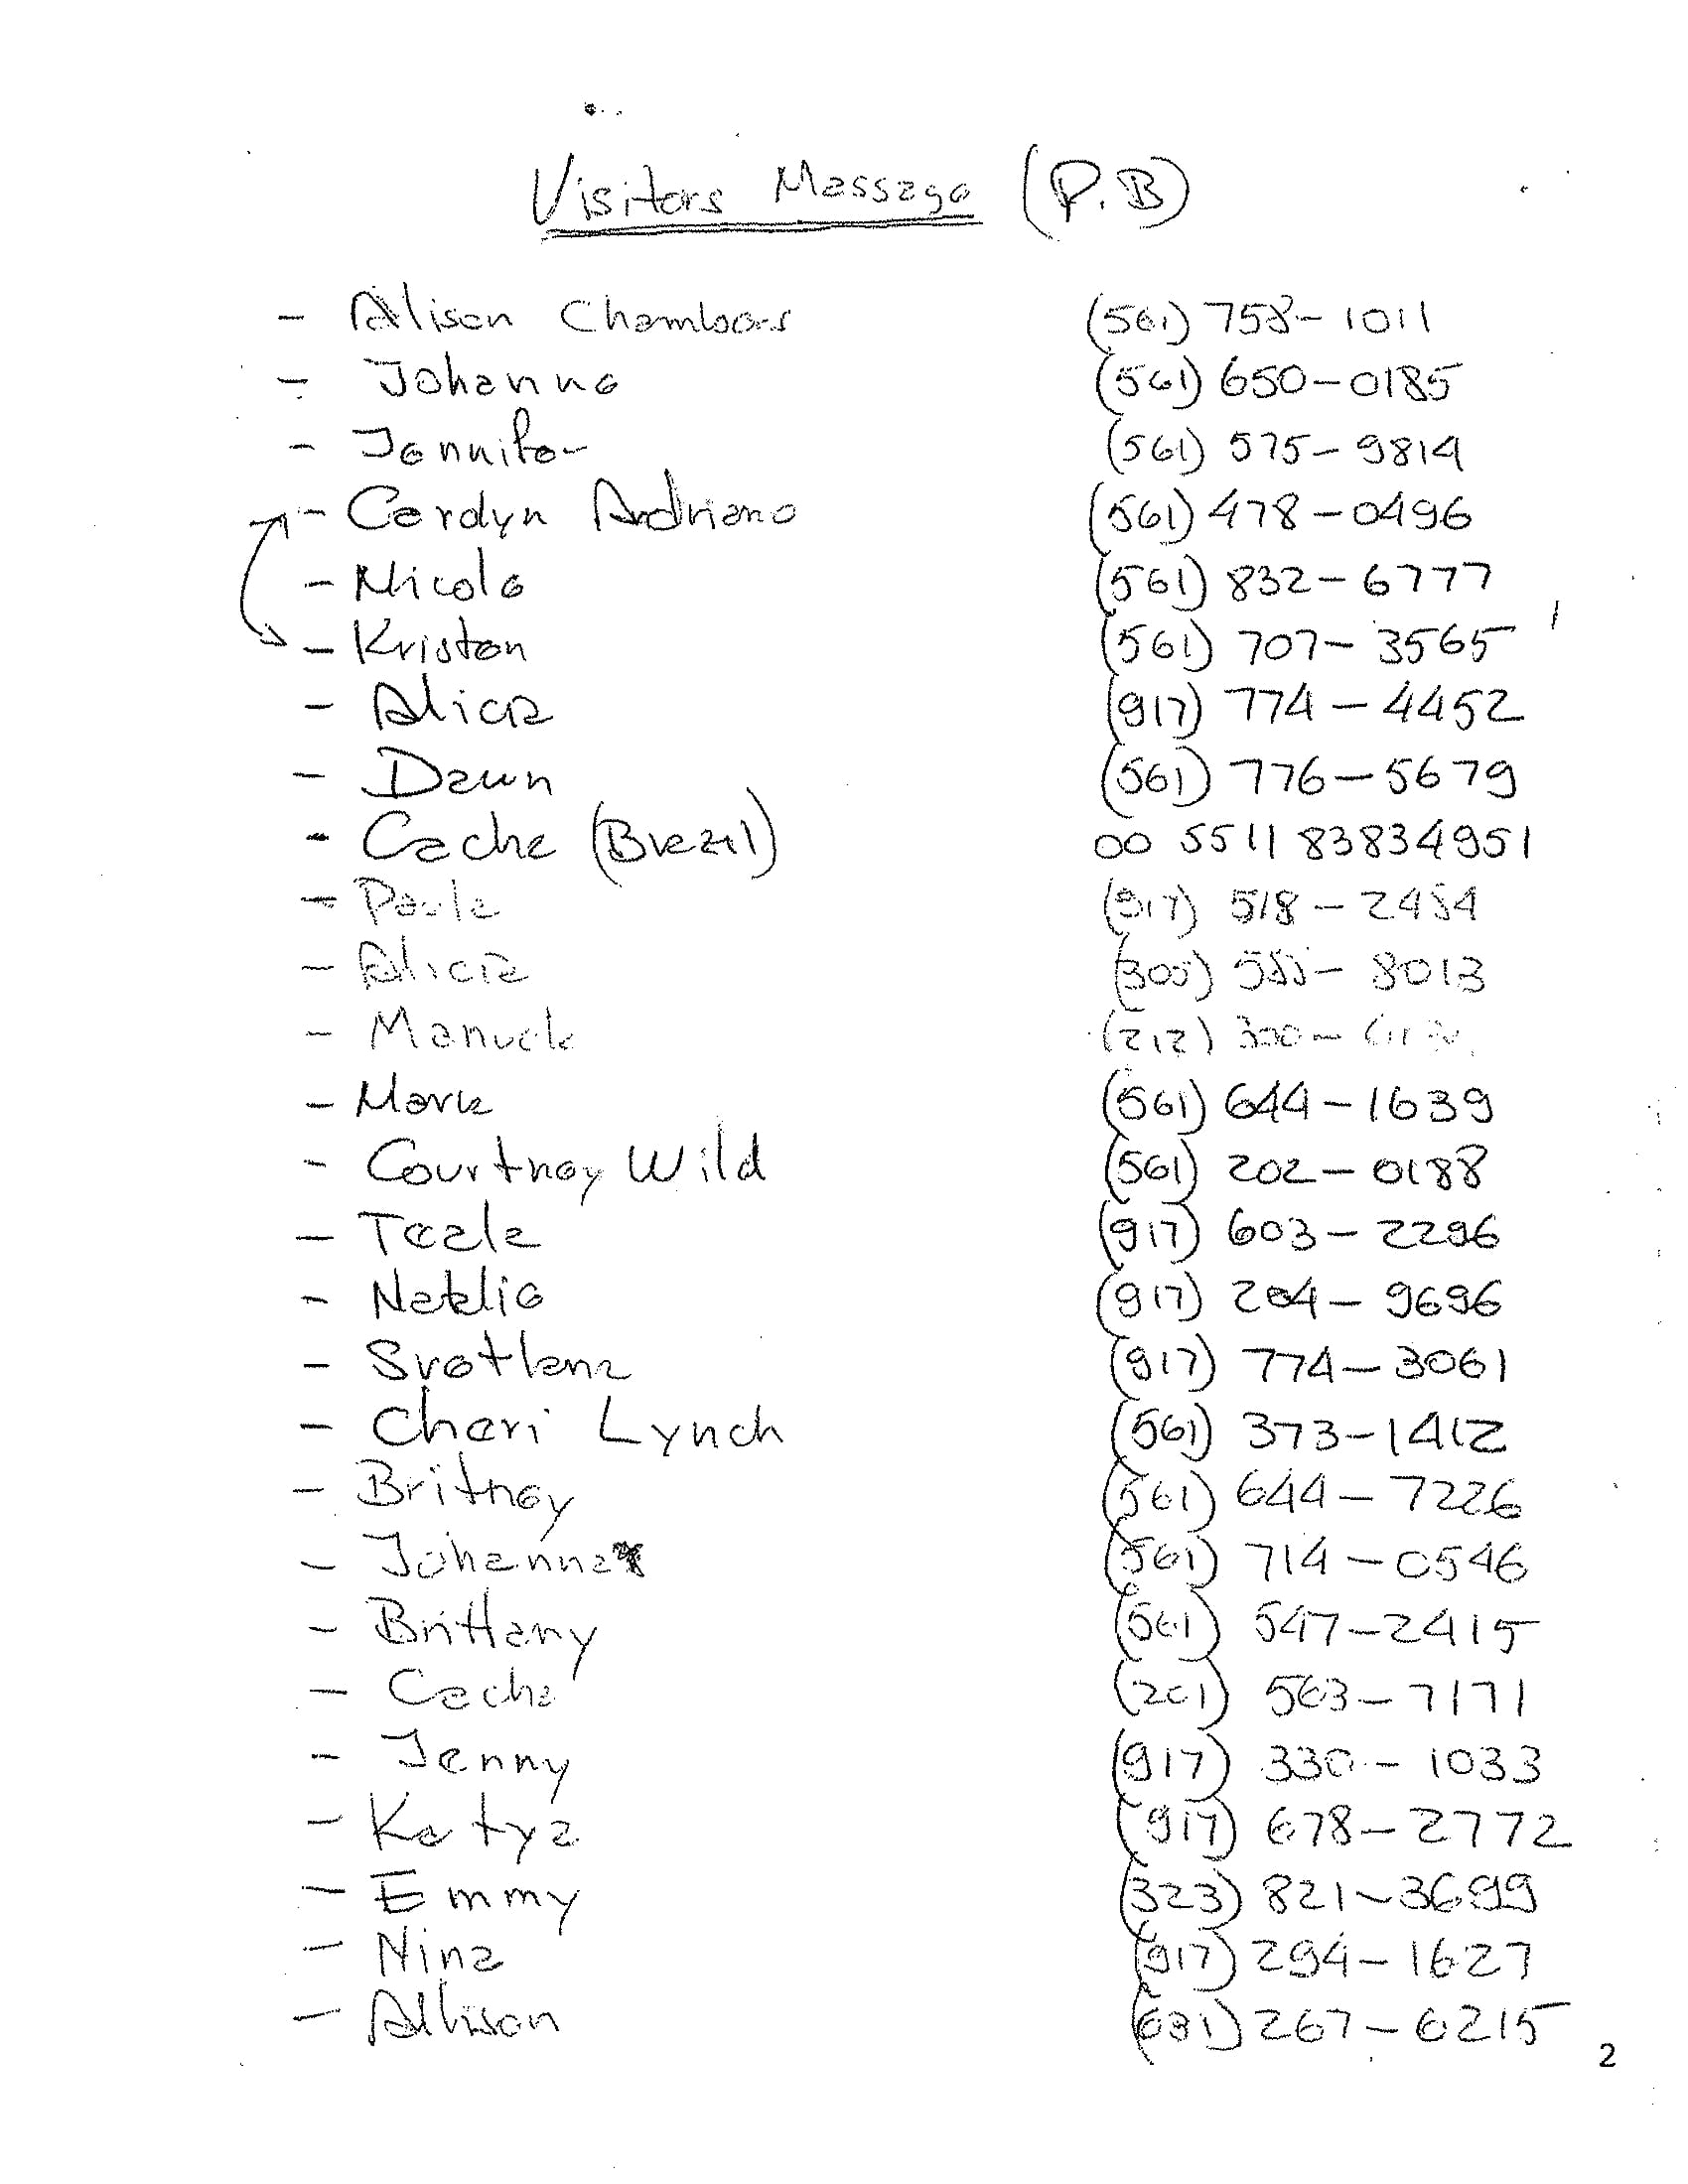 Visitors Massage (P.B)
- Alison Chambers (561) 758-1011
- Johanna (561) 650-0185
- Jennifer (561) 575-9814
- Carolyn Andriano (561) 478-0496
- Nicole (561) 832-6777
- Kristen (561) 707-3565
- Alicia (917) 774-4452
- Dawn (561) 776-5679
- Cacha (Brazil) 00 5511 83834951
- Paula (917) 518-2454
- Alicia (305) 8013
- Manuela (212) 300-
- Mark (561) 644-1639
- Courtney Wild (561) 202-0188
- Taala (917) 603-2296
- Natalie (917) 204-9696
- Svetlana (917) 774-3061
- Cheri Lynch (561) 373-1412
- Britney (561) 644-7226
- Johanna* (561) 714-0546
- Brittany (561) 547-2415
- Cacha (201) 563-7171
- Jenny (917) 330-1033
- Katya (917) 678-2772
- Emmy (323) 821-3699
- Nina (917) 294-1627
- Allison (631) 267-6215
2